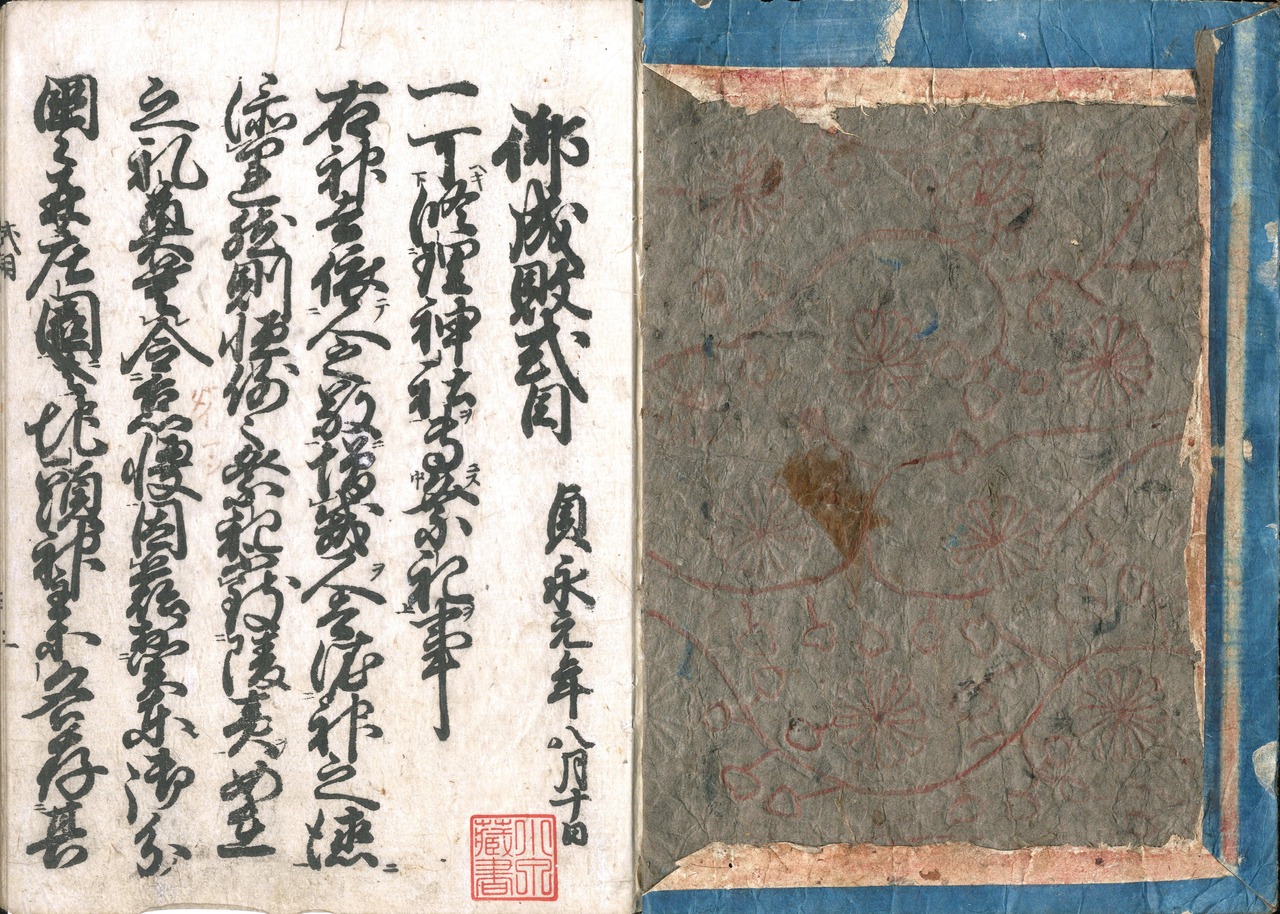 御成敗式目
貞永元年八月十日
一可修理神社専祭祀事
右神者依人之敬増威人者依神之徳
添運然則恒例之祭祀不致陵夷如在
之礼奠莫令怠慢因茲於関東御分
國々并庄園者地頭神主等各存其
式目
藏書